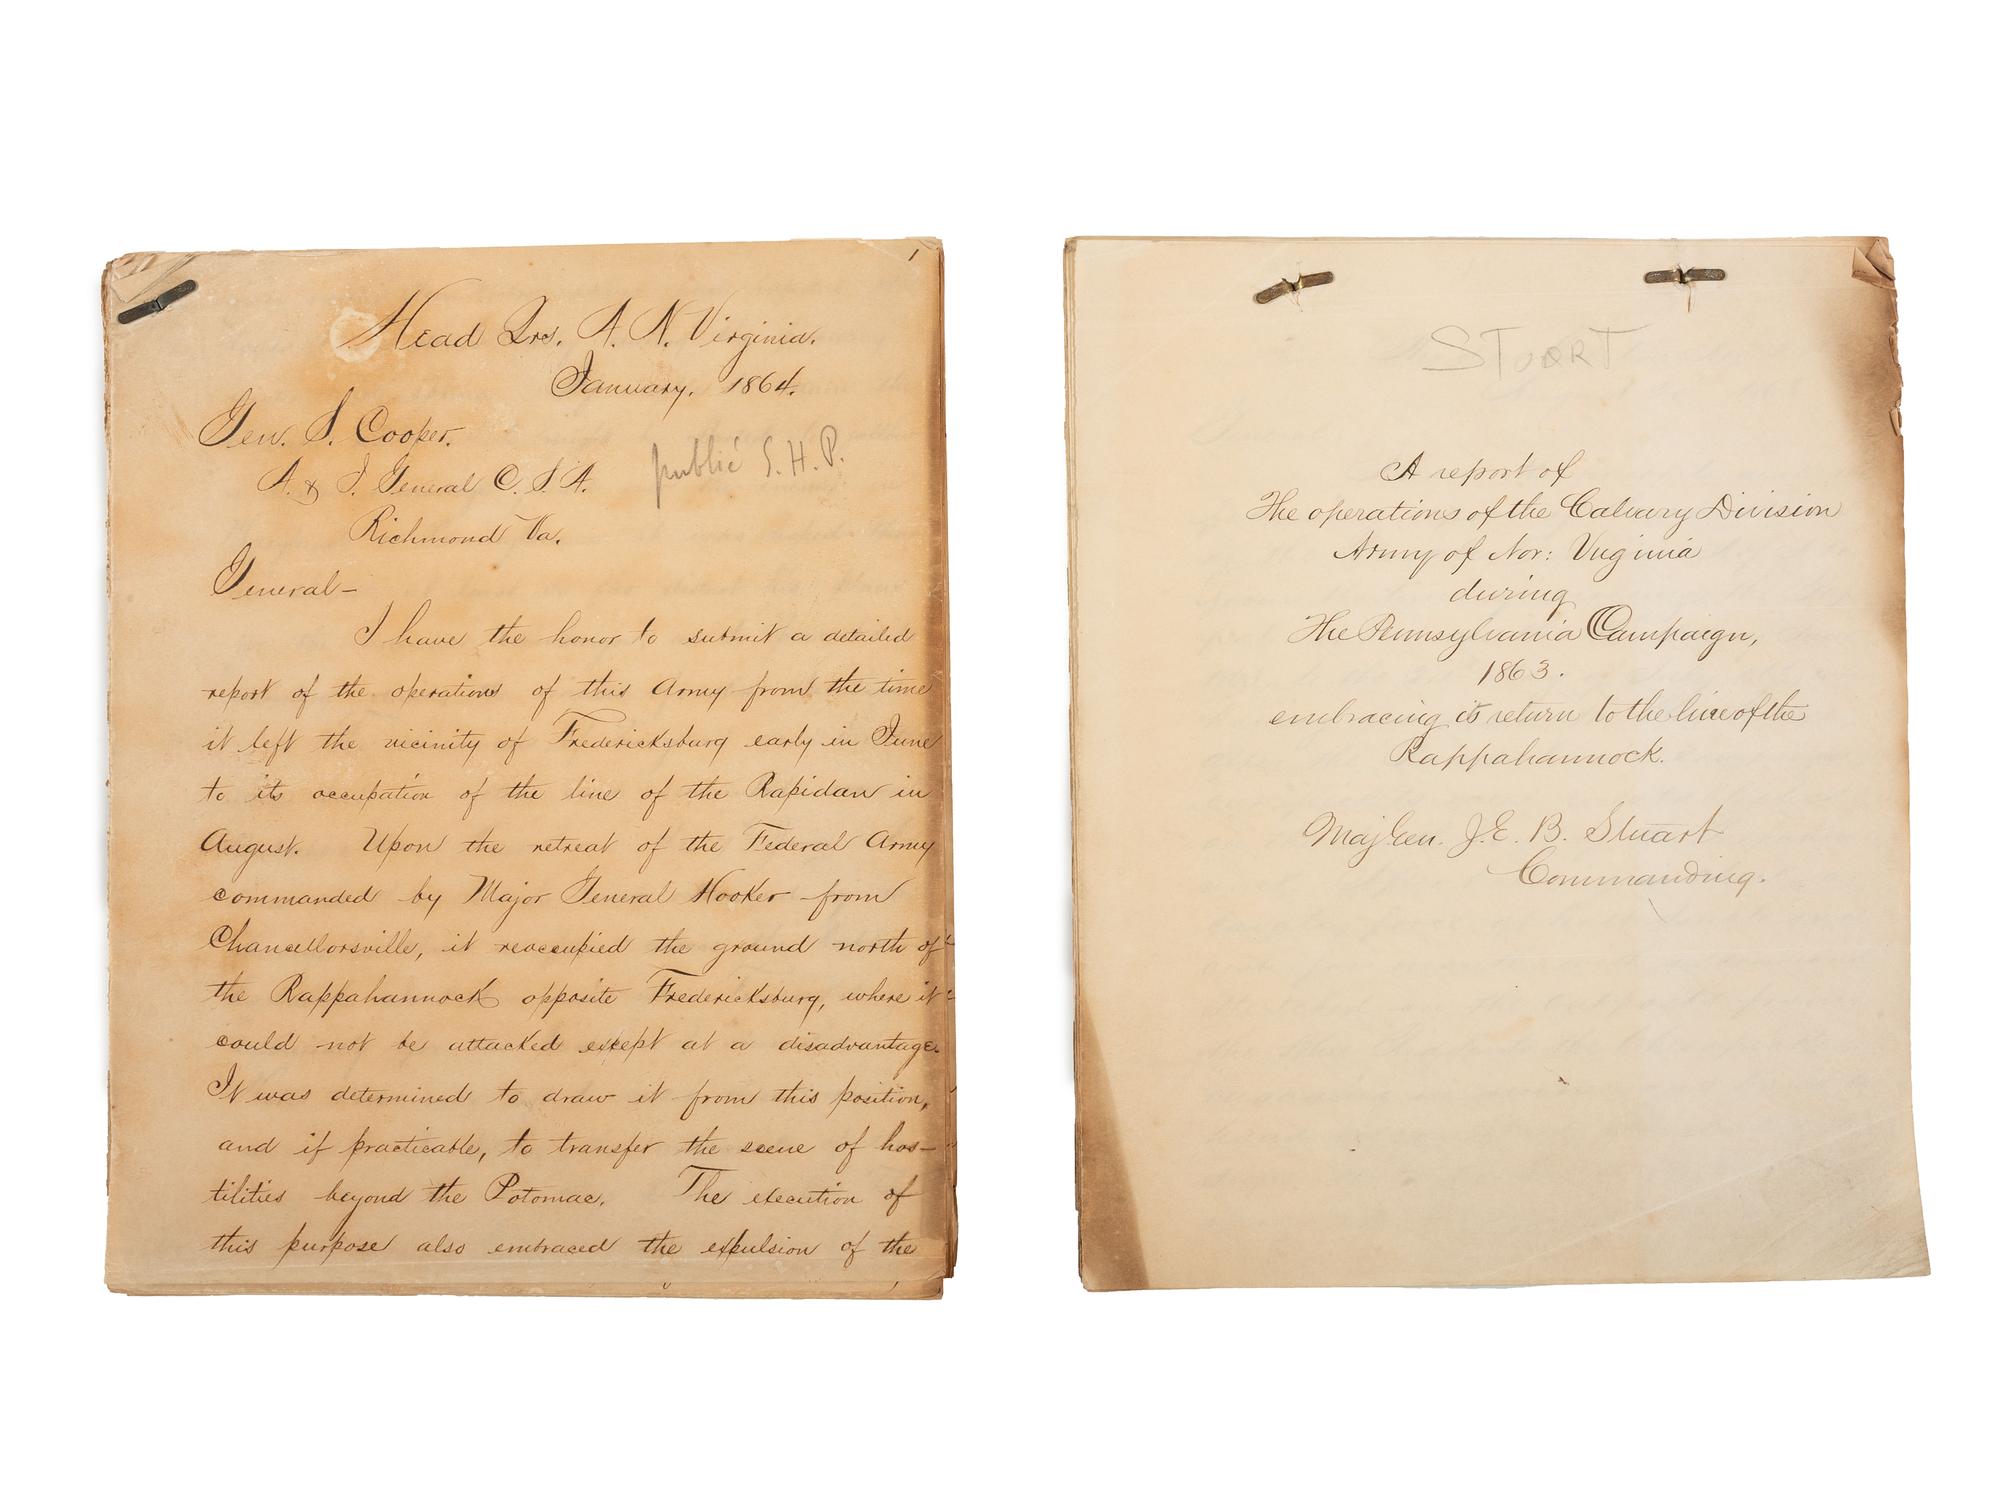 1
Head Qrs. A. N. Virginia.
January, 1864.
Gen. S. Cooper.
A. & I. General C. S. A.
public S. H. P.
Richmond Va.
General—
I have the honor to submit a detailed
report of the operations of this Army from the time
it left the vicinity of Fredericksburg early in June
to its occupation of the line of the Rapidan in
August. Upon the retreat of the Federal Army
commanded by Major General Hooker from
Chancellorsville, it reoccupied the ground north of
the Rappahannock opposite Fredericksburg, where it
could not be attacked except at a disadvantage.
It was determined to draw it from this position,
and if practicable, to transfer the scene of hos-
tilities beyond the Potomac. The execution of
this purpose also embraced the expulsion of the
STUART
A report of
The operations of the Calvary Division
Army of Nor: Virginia
during
The Pennsylvania Campaign,
1863.
embracing its return to the line of the
Rappahannock.
Maj Gen. J. E. B. Stuart
Commanding.